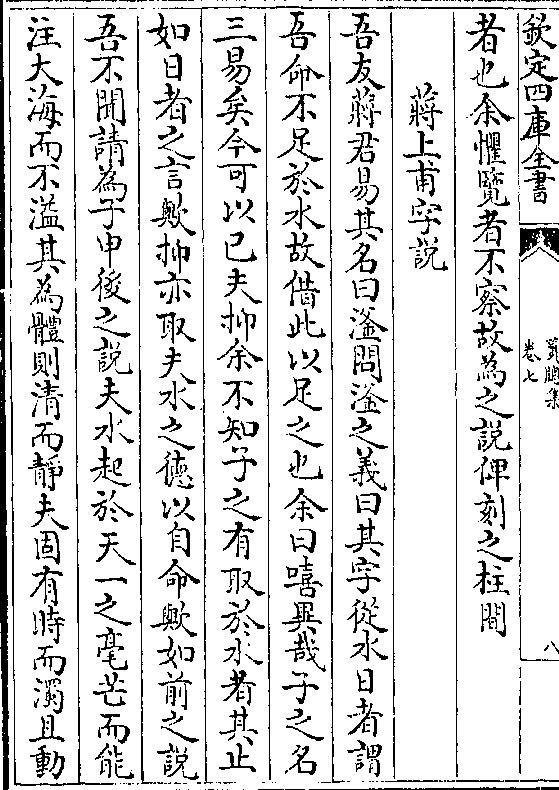 欽定四庫全書
卷七
八
者也余懼覽者不察故為之說俾刻之柱間
蔣上甫字說
吾友蔣君易其名曰滏問滏之義曰其字從水日者謂
吾命不足於水故借此以足之也余曰嘻異哉子之名
三易矣今可以已夫抑余不知子之有取於水者其止
如日者之言歟抑亦取夫水之德以自命歟如前之說
吾不聞請為子申後之說夫水起於天一之毫芒而能
注大海而不溢其為體則清而靜夫固有時而濁且動